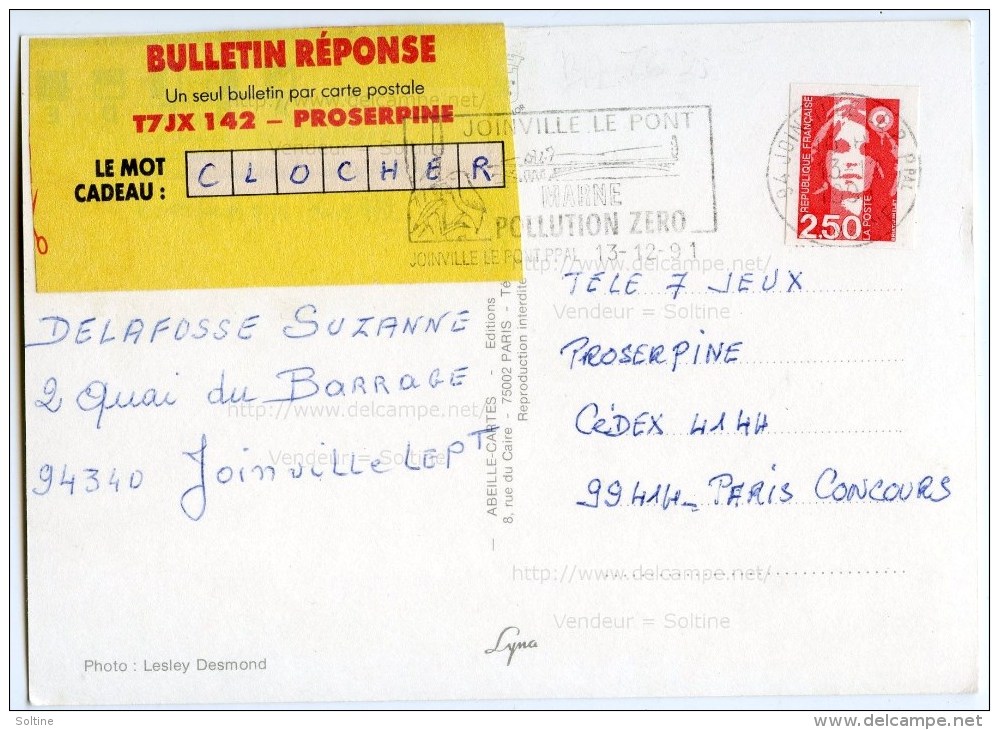 BULLETIN RÉPONSE
Un seul bulletin par carte postale
T7JX 142 – PROSERPINE
LE MOT
CADEAU :
CLOCHER
JOINVILLE LE PONT
MARNE
POLLUTION ZERO
JOINVILLE LE PONT PPAL 13-12-91
94 JOIN
PPAL
RÉPUBLIQUE FRANÇAISE
2,50
LA POSTE
DELAFOSSE SUZANNE
2 Quai du BARRAGE
94340 Joinville LE PT
TÉLÉ 7 JEUX
PROSERPINE
CéDEX 4144
99414_ PARIS CONCOURS
ABEILLE-CARTES - Editions
8, rue du Caire - 75002 PARIS - Té
Reproduction interdite
Lyna
Photo : Lesley Desmond
http://www.delcampe.net/
Vendeur = Soltine
http://www.delcampe.net/
Vendeur = Soltine
http://www.delcampe.net/
Vendeur = Soltine
http://www.delcampe.net/
Vendeur = Soltine
Soltine
delcampe.net